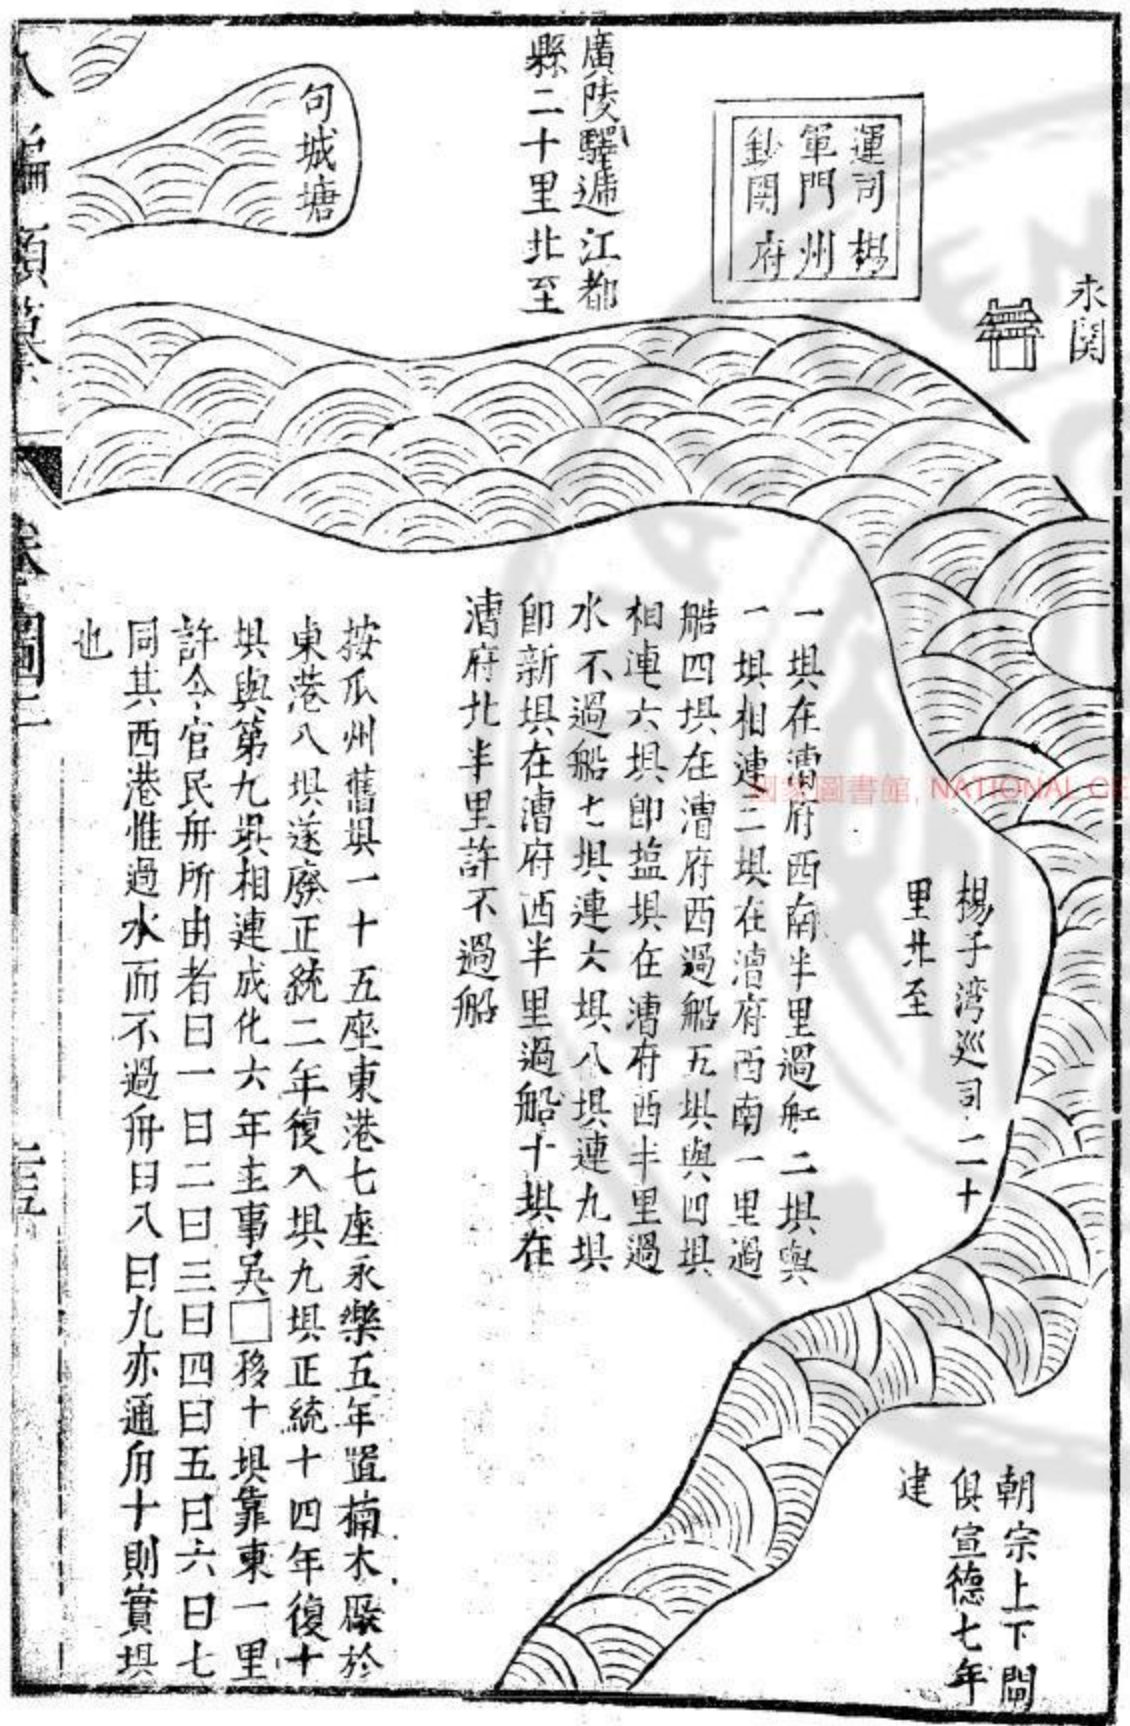 水関
運司楊
軍門州
鈔関府
廣陵驛逓江都
縣二十里北至
句城塘
楊子湾巡司二十
里北至
一垻在漕府西南半里過舡二垻與
一垻相連三垻在漕府西南一里過
船四垻在漕府西過船五垻與四垻
相連六垻即塩垻在漕府西半里過
水不過船七垻連六垻八垻連九垻
即新垻在漕府西半里過船十垻在
漕府北半里許不過船
按瓜州舊垻一十五座東港七座永樂五年置楠木厰於
東港八垻遂廢正統二年復八垻九垻正統十四年復十
垻與第九垻相連成化六年主事吳□移十垻靠東一里
許令官民舟所由者曰一曰二曰三曰四曰五曰六曰七
同其西港惟過水而不過舟曰八曰九亦通舟十則實垻
也
朝宗上下閘
俱宣德七年
建
八編類纂
圖
國家圖書館, NATIONAL CE